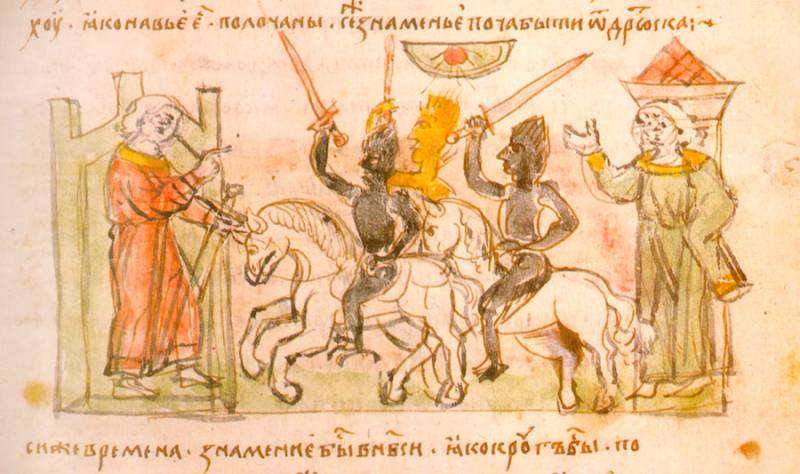 хоу · ꙗконавье є҃ · полочаны · се҃знаменьє почабыти ѿ дрьюска :~
сиже времена · знамениє бы́в нб҃си · ꙗко кроугъ бы́ · по